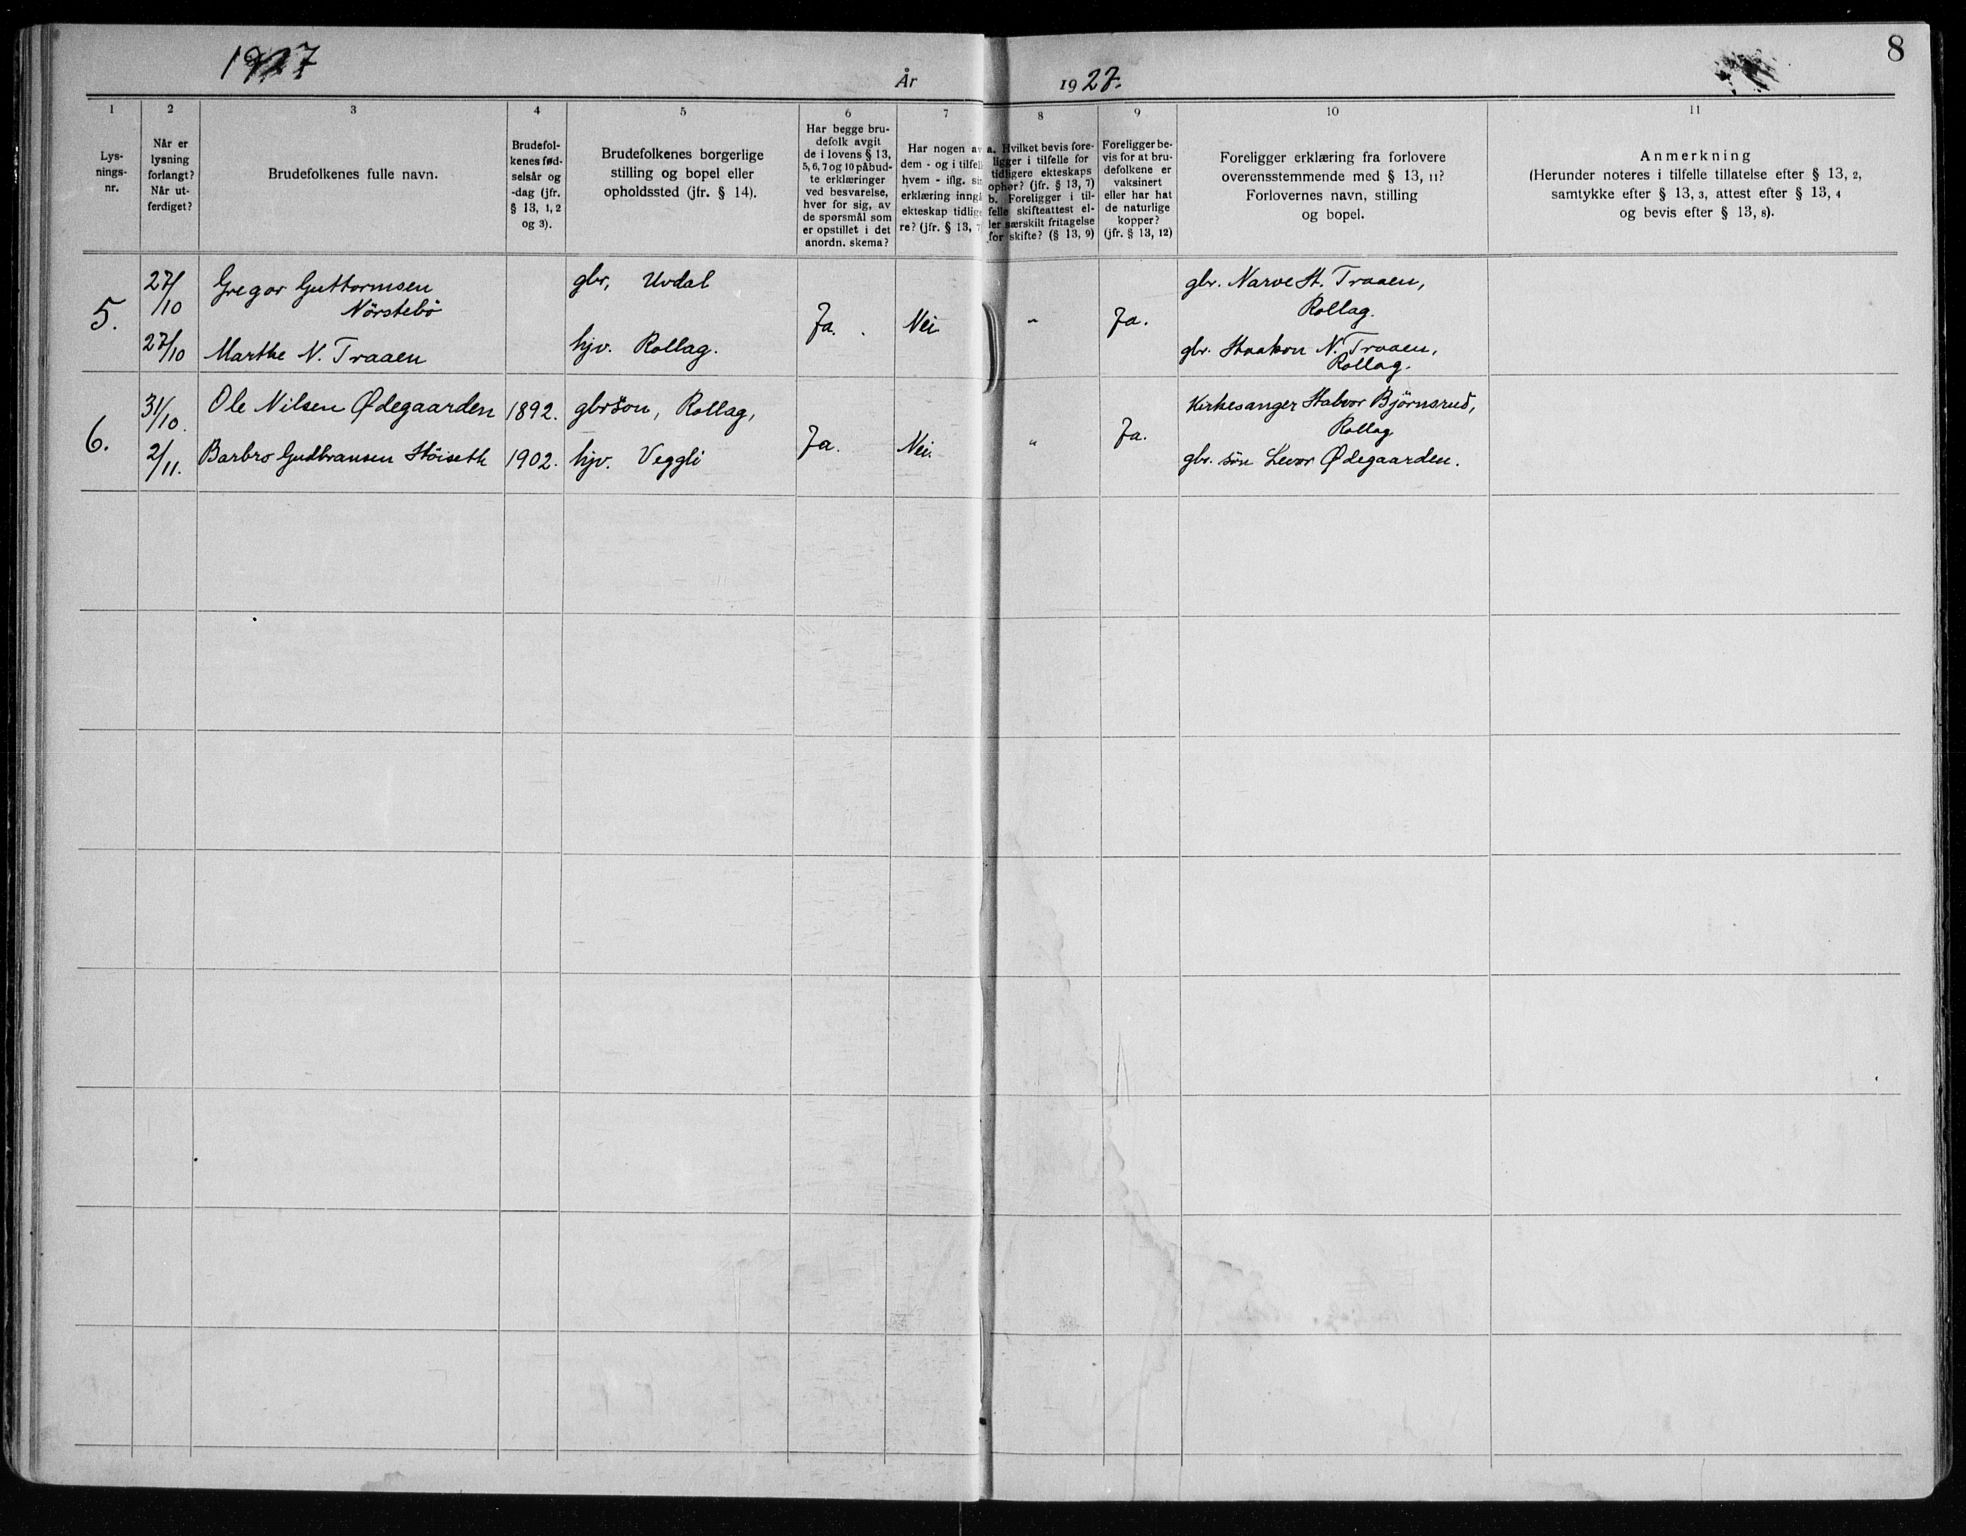 1927
År
1927.
8
1
2
3
4
5
6
7
8
9
10
11
Lys-
nings-
nr.
Når er
lysning
forlangt?
Når ut-
ferdiget?
Brudefolkenes fulle navn.
Brudefol-
kenes fød-
selsår og
-dag (jfr.
§ 13, 1, 2
og 3).
Brudefolkenes borgerlige
stilling og bopel eller
opholdssted (jfr. § 14).
Har begge bru-
defolk avgit
de i lovens § 13,
5, 6, 7 og 10 påbud-
te erklæringer
ved besvarelse,
hver for sig, av
de spørsmål som
er opstillet i det
anordn. skema?
Har nogen av
dem - og i tilfelle
hvem - iflg. sin
erklæring inngå
ekteskap tidlige
re? (jfr. § 13, 7
a. Hvilket bevis fore-
ligger i tilfelle for
tidligere ekteskaps
ophør? (jfr. § 13, 7)
b. Foreligger i til-
felle skifteattest el-
ler særskilt fritagelse
for skifte? (§ 13, 9)
Foreligger be-
vis for at bru-
defolkene er
vaksinert
eller har hat
de naturlige
kopper?
(jfr. § 13, 12)
Foreligger erklæring fra forlovere
overensstemmende med § 13, 11?
Forlovernes navn, stilling
og bopel.
Anmerkning
(Herunder noteres i tilfelle tillatelse efter § 13, 2,
samtykke efter § 13, 3, attest efter § 13, 4
og bevis efter § 13, 8).
5.
27/10
Gregor Guttormsen
Nörstebö
gbr, Uvdal
Ja.
Nei
"
Ja.
gbr. Narve H. Traaen,
Rollag.
27/10
Marthe N. Traaen
hjv. Rollag.
gbr. Haakon N. Traaen,
Rollag.
6.
31/10.
Ole Nilsen Ødegaarden
1892.
gbrsön, Rollag,
Ja.
Nei.
"
Ja.
Kirkesanger Halvor Björnsrud,
Rollag
2/11.
Barbro Gudbransen Höiseth
1902.
hjv. Veggli
gbr. sön Levor Ødegaarden.